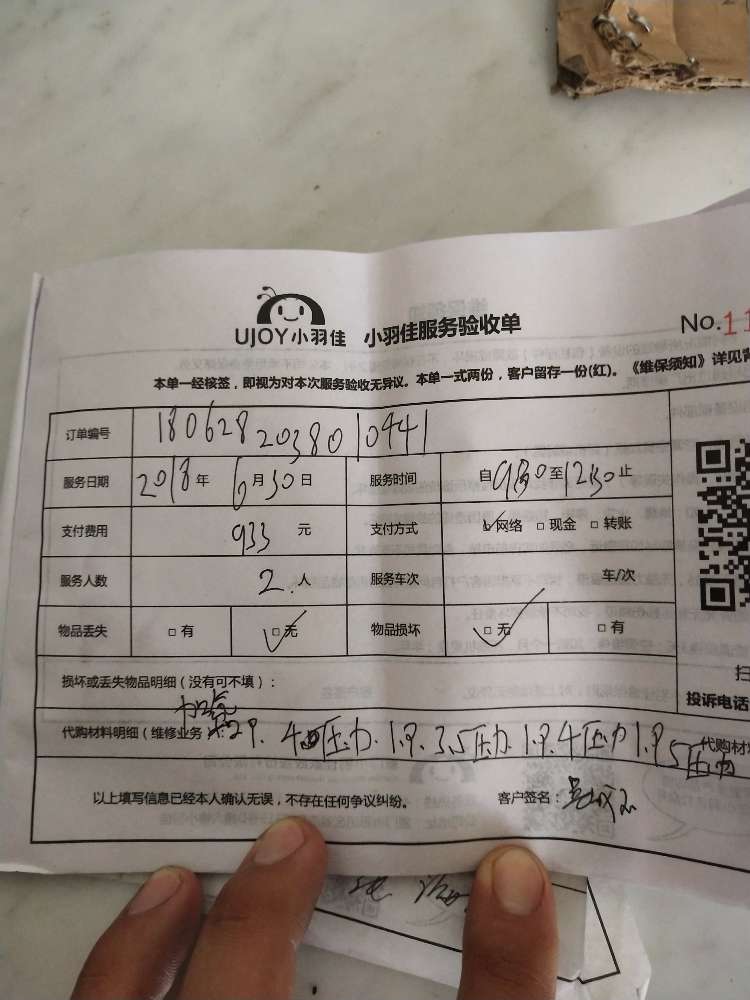 UJOY小羽佳 小羽佳服务验收单 No.11
本单一经核签，即视为对本次服务验收无异议。本单一式两份，客户留存一份(红)。《维保须知》详见背
订单编号 180628203801044 1
服务日期 2018年6月30日 服务时间 自9:30至12:30止
支付费用 933元 支付方式 ☑网络 □现金 □转账
服务人数 2.人 服务车次 车/次
物品丢失 □有 ☑无 物品损坏 ☑无 □有
损坏或丢失物品明细（没有可填）：
代购材料明细（维修业务） 2P. 4.0压力. 1.P. 3.5压力. 1.P. 4压力 1.P 5压力
代购材
投诉电话
以上填写信息已经本人确认无误，不存在任何争议纠纷。 客户签名：